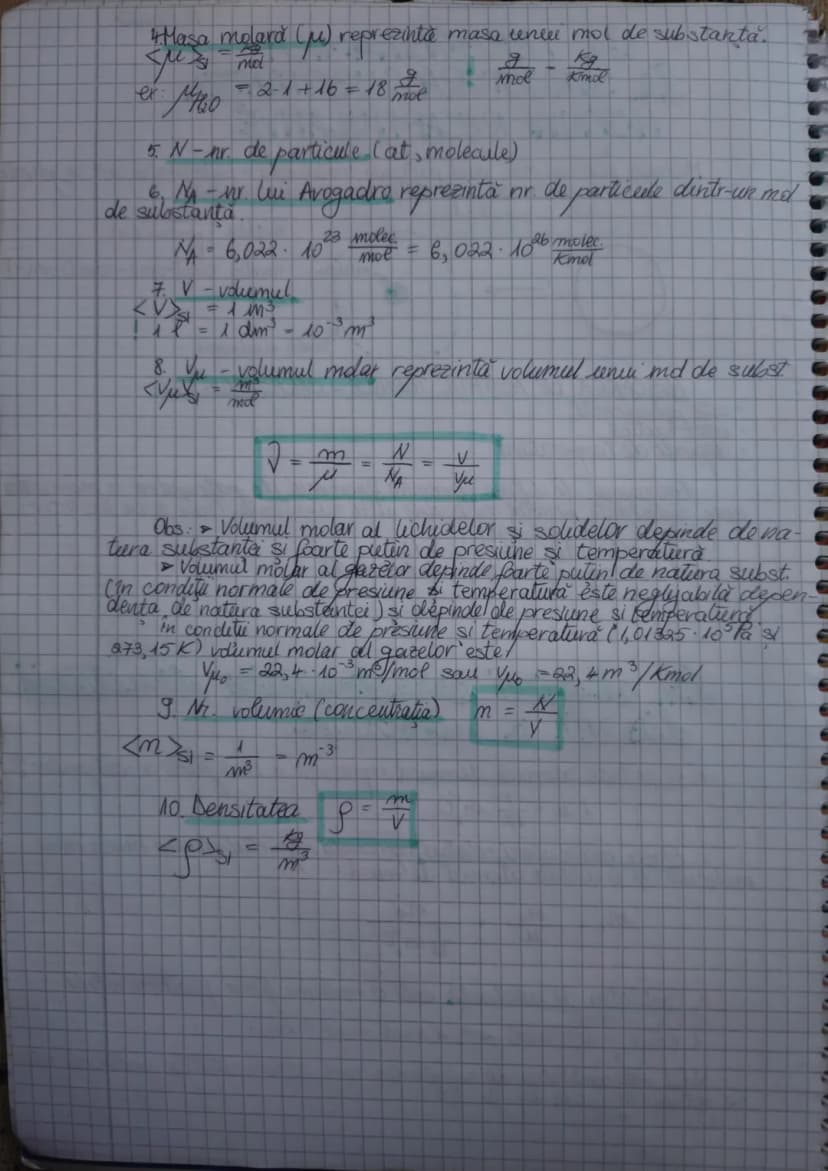 4. Masa molară (μ) reprezintă masa unui mol de substanță.
<μ>SI = kg/mol ! g/mol = kg/Kmol
ex: μH₂O = 2·1+16 = 18 g/mol
5. N - nr. de particule (at, molecule)
6. NA - nr. lui Avogadro reprezintă nr. de particule dintr-un mol
de substanță.
NA = 6,022 · 10²³ molec./mol = 6,022 · 10²⁶ molec./Kmol
7. V - volumul
<V>SI = 1 m³
! 1 l = 1 dm³ = 10⁻³ m³
8. Vμ - volumul molar reprezintă volumul unui mol de subst.
<Vμ>SI = m³/mol
ν = m/μ = N/NA = V/Vμ
Obs: > Volumul molar al lichidelor și solidelor depinde de na-
tura substanței și foarte puțin de presiune și temperatură
> Volumul molar al gazelor depinde foarte puțin de natura subst.
(în condiții normale de presiune și temperatură este neglijabilă depen-
dența de natura substanței) și depinde de presiune și temperatură
în condiții normale de presiune și temperatură (1,01325 · 10⁵ Pa și
273,15 K) volumul molar al gazelor este!
Vμ₀ = 22,4 · 10⁻³ m³/mol sau Vμ₀ = 22,4 m³/Kmol
9. Nr. volumic (concentrația) n = N/V
<n>SI = 1/m³ = m⁻³
10. Densitatea ρ = m/V
<ρ>SI = kg/m³